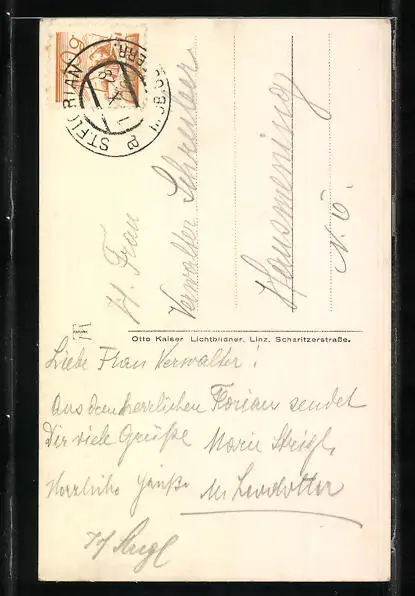 60
ST. FLORIAN
H. Frau
Verwalter Schreiber
Hausmening
N. Ö.
Otto Kaiser Lichtbildner, Linz, Scharitzerstraße.
Liebe Frau Verwalter!
Aus dem herrlichen Florian sendet
Dir viele Grüße Marie
Herzliche Grüße